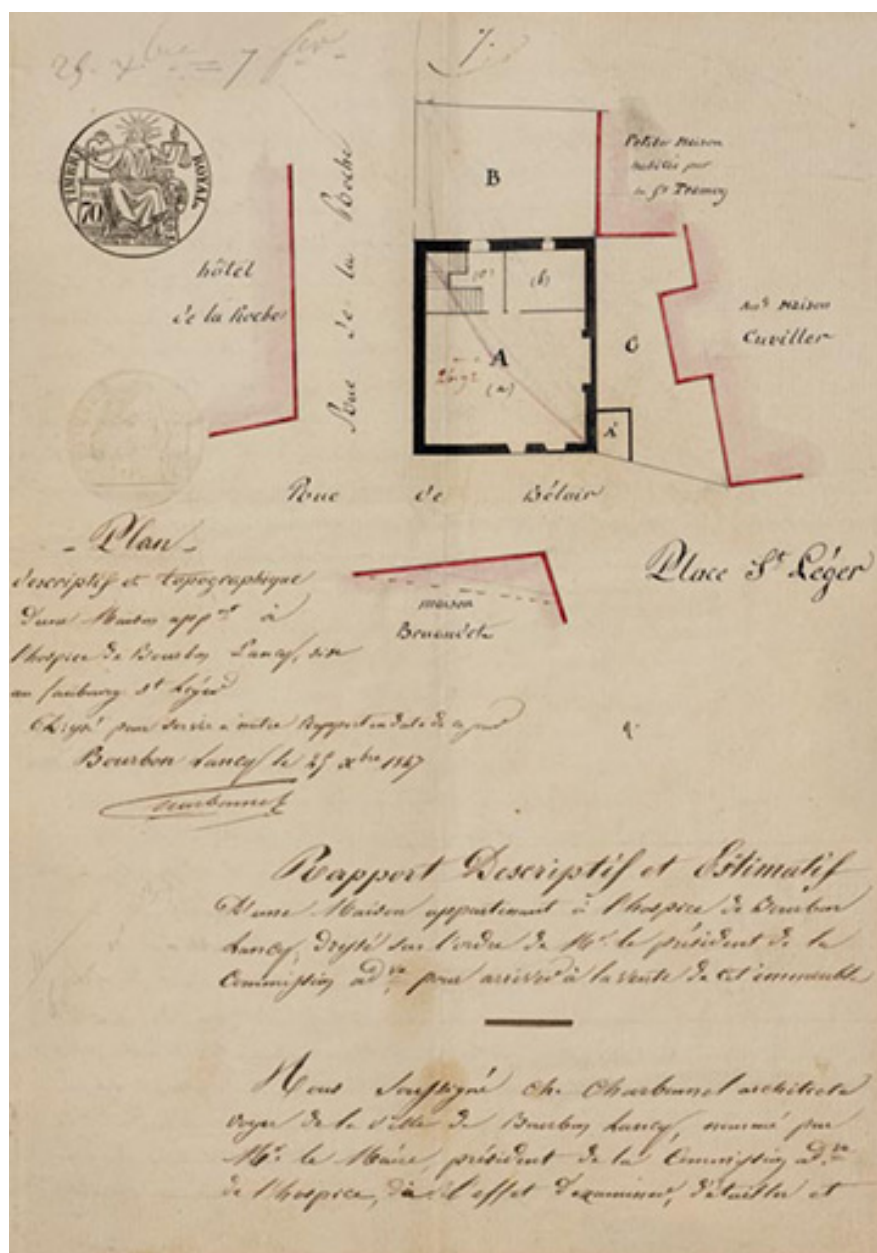 25 xbre = 7 fev
7.
TIMBRE ROYAL
70
hôtel
de la Roche
Rue de la Roche
B
Petite Maison
habitée par
le Sr
(c)
(b)
A
(a)
C
A'
Anne Maison
Cuviller
Rue de Bélair
Place St Léger
- Plan -
descriptif et topographique
d'une Maison appnt à
l'hospice de Bourbon Lancy, sise
au faubourg St Léger
pour servir à notre Rapport en date de ce jour
Bourbon Lancy le 25 xbre 1847
Charbonnel
maison
Rapport Descriptif et Estimatif
D'une Maison appartenant à l'hospice de Bourbon
Lancy, dressé sur l'ordre de Mr. le président de la
Commission adve pour arriver à la vente de cet immeuble
Nous Soussigné Ch. Charbonnel architecte
voyer de la ville de Bourbon Lancy, nommé par
Mr. le Maire président de la Commission adve
de l'hospice, à l'effet d'examiner, détailler et